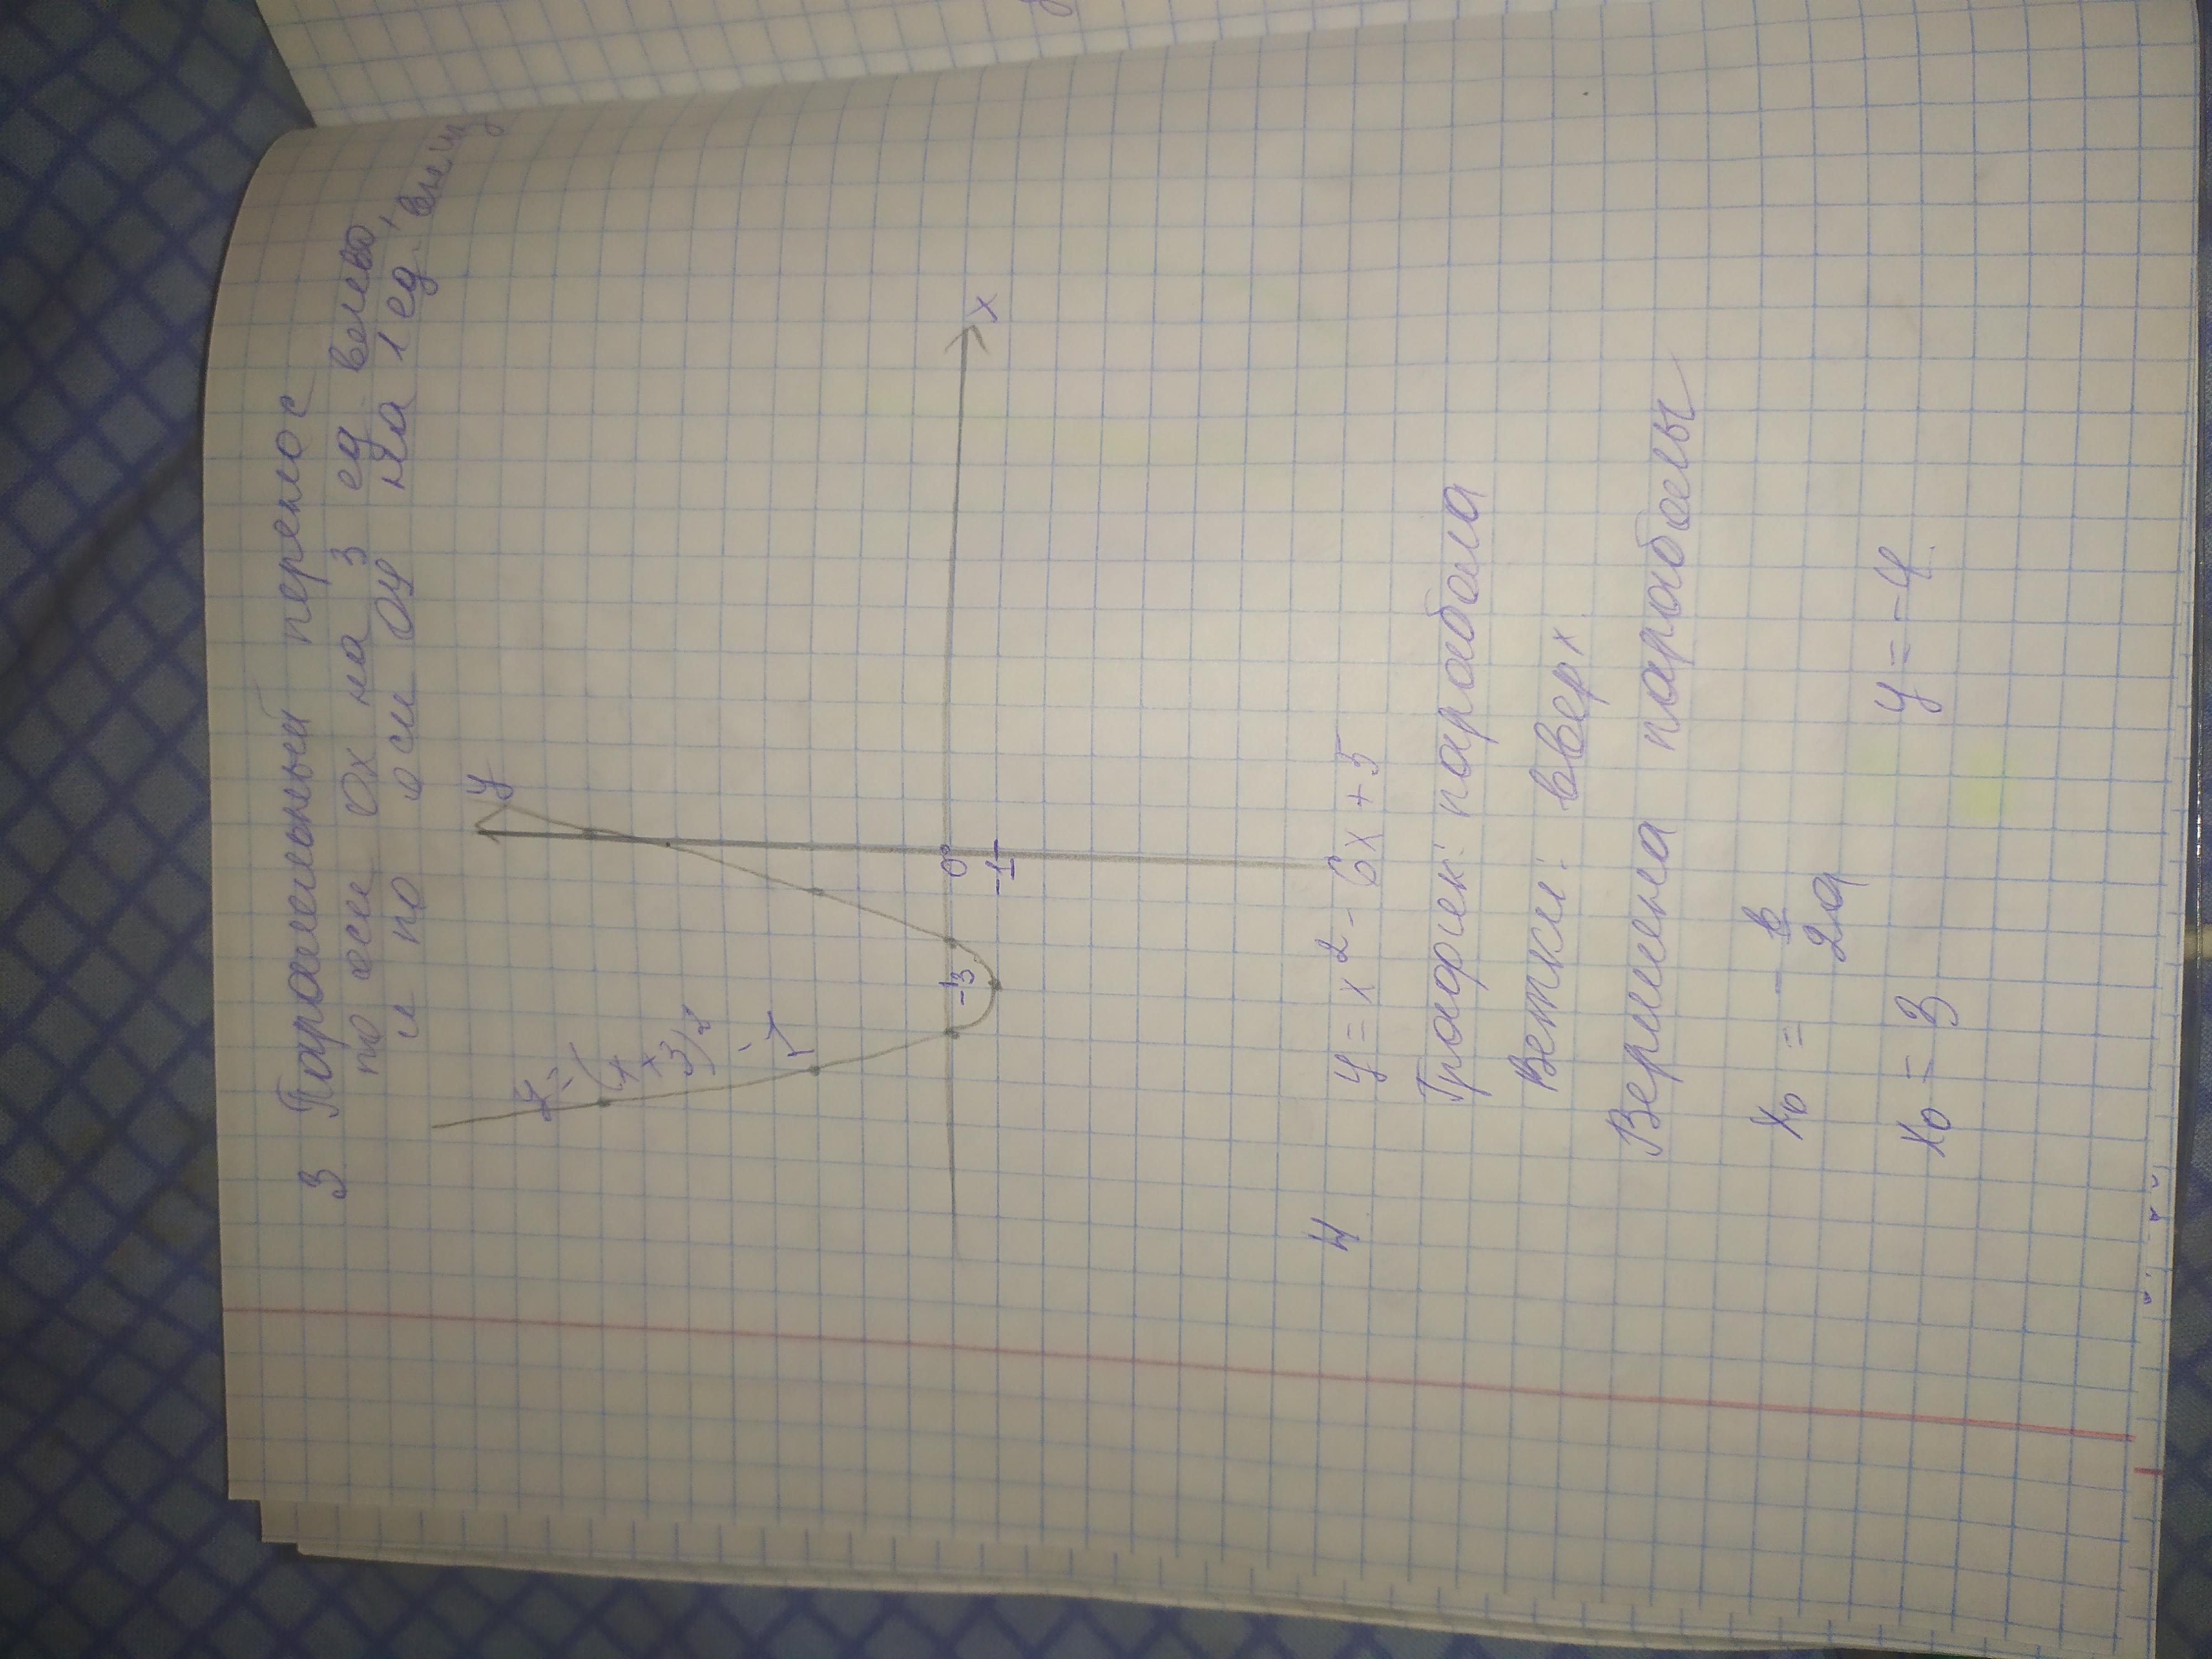 3 Параллельный перенос
по оси Ох на 3 ед влево,
и по оси Оу на 1 ед. вниз
y
y=
(x+
3)²
-1
-3
0
-1
x
4 y = x² - 6x + 5
График: парабола
Ветки: вверх
Вершина параболы
x₀ = - в/2a
x₀ = 3 y = -4